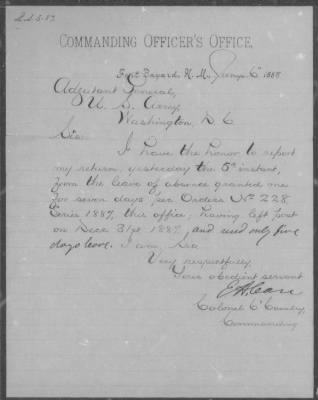 COMMANDING OFFICER'S OFFICE,
Fort Bayard, N. M., Jany 6th 1888
Adjutant General,
U. S. Army,
Washington, D C
Sir:
I have the honor to report
my return, yesterday the 5th instant,
from the leave of absence granted me
for seven days, per Orders No 228
Series 1887, this office; having left Post
on Dec. 31st 1887, and used only five
days leave. I am, Sir
Very respectfully
Your obedient servant
E A Carr
Colonel 6" Cavalry,
Commanding